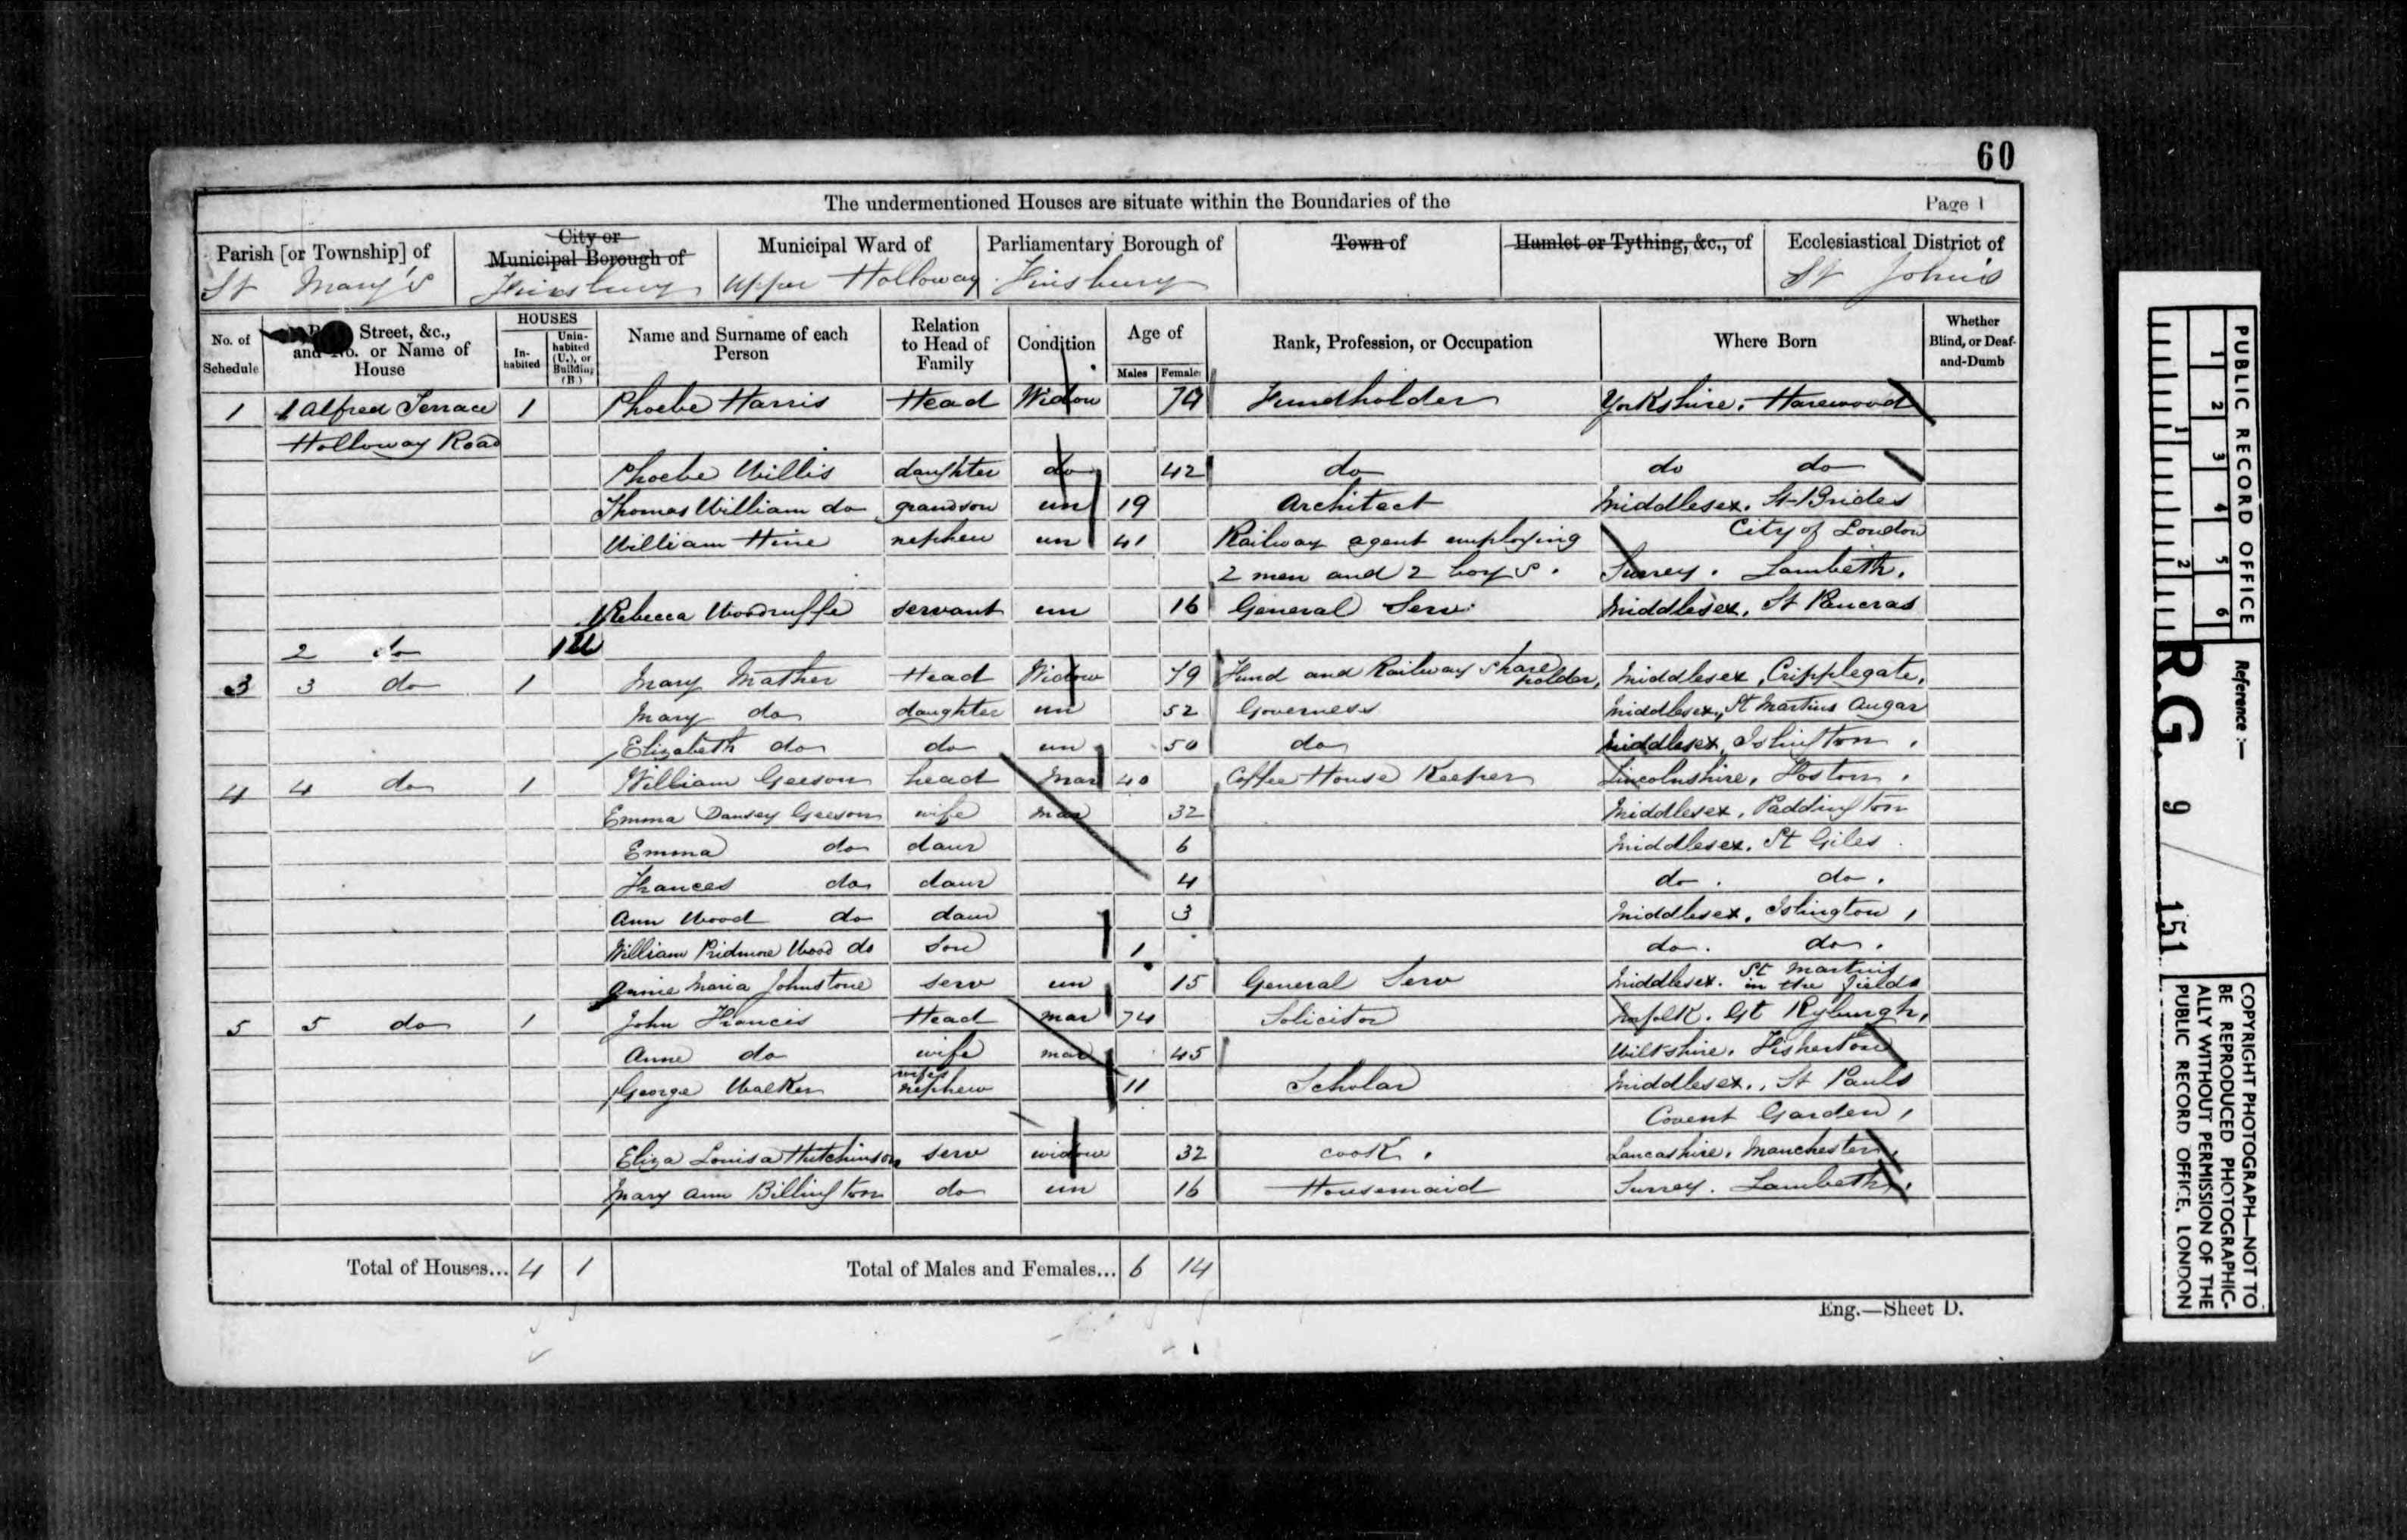 60
The undermentioned Houses are situate within the Boundaries of the Page 1
Parish [or Township] of City or Municipal Borough of Municipal Ward of Parliamentary Borough of Town of Hamlet or Tything, &c., of Ecclesiastical District of
St Mary's Finsbury Upper Holloway Finsbury St John's
No. of Schedule Street, &c., and No. or Name of House HOUSES Inhabited Uninhabited (U.), or Building (B.) Name and Surname of each Person Relation to Head of Family Condition Age of Males Females Rank, Profession, or Occupation Where Born Whether Blind, or Deaf-and-Dumb
1 1 Alfred Terrace 1 Phoebe Harris Head Widow 74 Fundholder Yorkshire. Harewood
Holloway Road
Phoebe Willis daughter do 42 do do do
Thomas William do grandson un 19 Architect Middlesex. St Brides
City of London
William Hine nephew un 41 Railway agent employing
2 men and 2 boys. Surrey. Lambeth.
Rebecca Woodruffe servant un 16 General Serv. Middlesex, St Pancras
2 do 1U
3 3 do 1 Mary Mather Head Widow 79 Fund and Railway Shareholder, Middlesex, Cripplegate,
Mary do daughter un 52 Governess Middlesex, St Martins Augar
Elizabeth do do un 50 do Middlesex, Islington.
4 4 do 1 William Geeson head Mar 40 Coffee House Keeper Lincolnshire,
Emma Dansey Geeson wife mar 32 Middlesex, Paddington
Emma do daur 6 Middlesex. St Giles
Frances do daur 4 do. do.
Ann Wood do daur 3 Middlesex, Islington,
William Pridmore Wood do Son 1 do. do.
Annie Maria Johnstone serv un 15 General Serv Middlesex. St Martins in the Fields
5 5 do 1 John Francis Head mar 74 Solicitor Norfolk. Gt Ryburgh,
Anne do wife mar 45 Wiltshire. Fisherton
George Walker wifes nephew 11 Scholar Middlesex., St Pauls
Covent Garden,
Eliza Louisa Hutchinson serv widow 32 cook. Lancashire. Manchester.
Mary Ann Billington do un 16 Housemaid Surrey. Lambeth.
Total of Houses... 4 1 Total of Males and Females... 6 14
Eng.—Sheet D.
PUBLIC RECORD OFFICE
1 2 3 4 5 6
1 2
Reference:—
R.G. 9 / 151
COPYRIGHT PHOTOGRAPH—NOT TO
BE REPRODUCED PHOTOGRAPHIC-
ALLY WITHOUT PERMISSION OF THE
PUBLIC RECORD OFFICE, LONDON